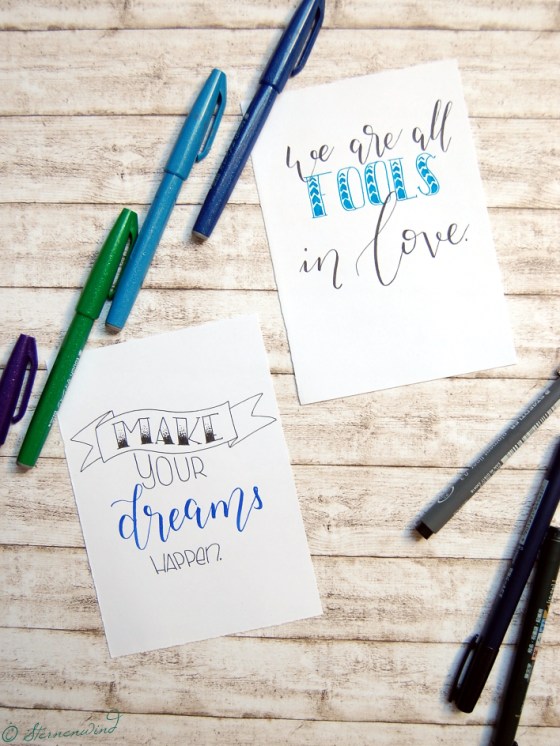 we are all
FOOLS
in love.
MAKE
YOUR
dreams
HAPPEN.
© Sternenwind